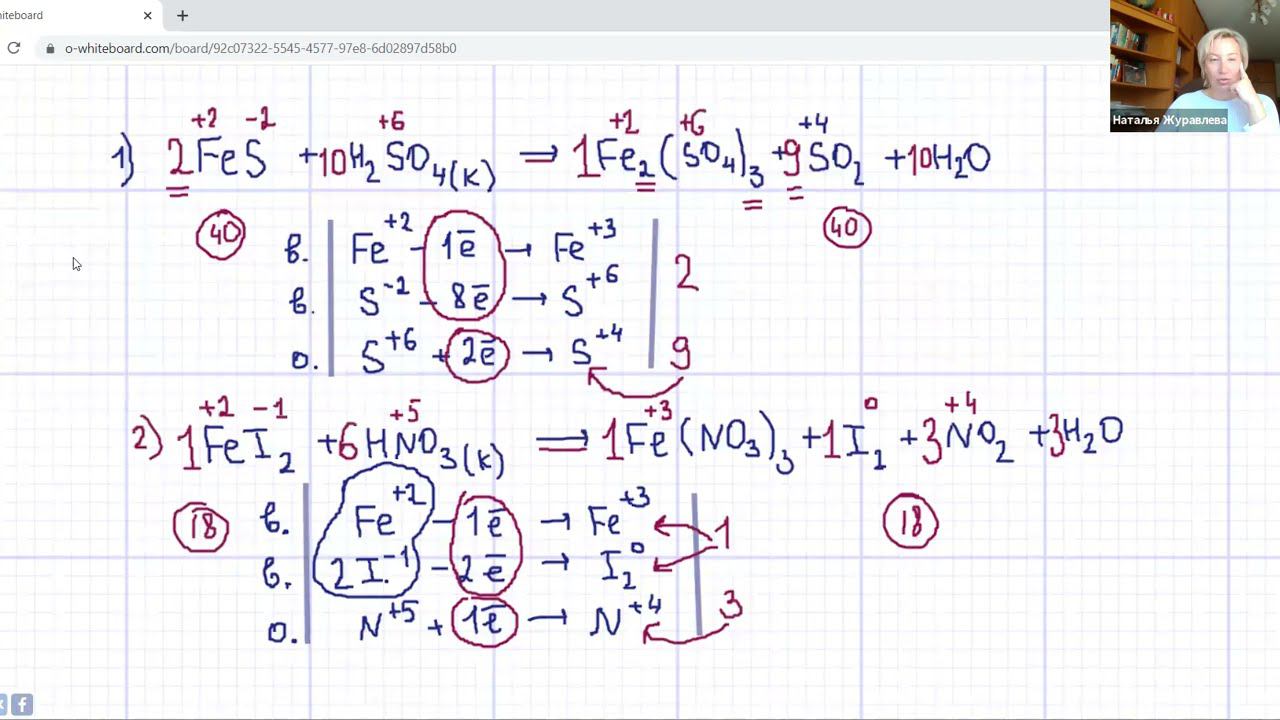 hiteboard
o-whiteboard.com/board/92c07322-5545-4577-97e8-6d02897d58b0
Наталья Журавлева
+2 -2 +6 +2 +6 +4
1) 2FeS + 10H₂SO₄(к) = 1Fe₂(SO₄)₃ + 9SO₂ + 10H₂O
40 40
в. Fe⁺² - 1ē → Fe⁺³
в. S⁻² - 8ē → S⁺⁶ 2
о. S⁺⁶ + 2ē → S⁺⁴ 9
+2 -1 +5 +3 0 +4
2) 1FeI₂ + 6HNO₃(к) = 1Fe(NO₃)₃ + 1I₂ + 3NO₂ + 3H₂O
18 18
в. Fe⁺² - 1ē → Fe⁺³ 1
в. 2I⁻¹ - 2ē → I₂⁰
о. N⁺⁵ + 1ē → N⁺⁴ 3